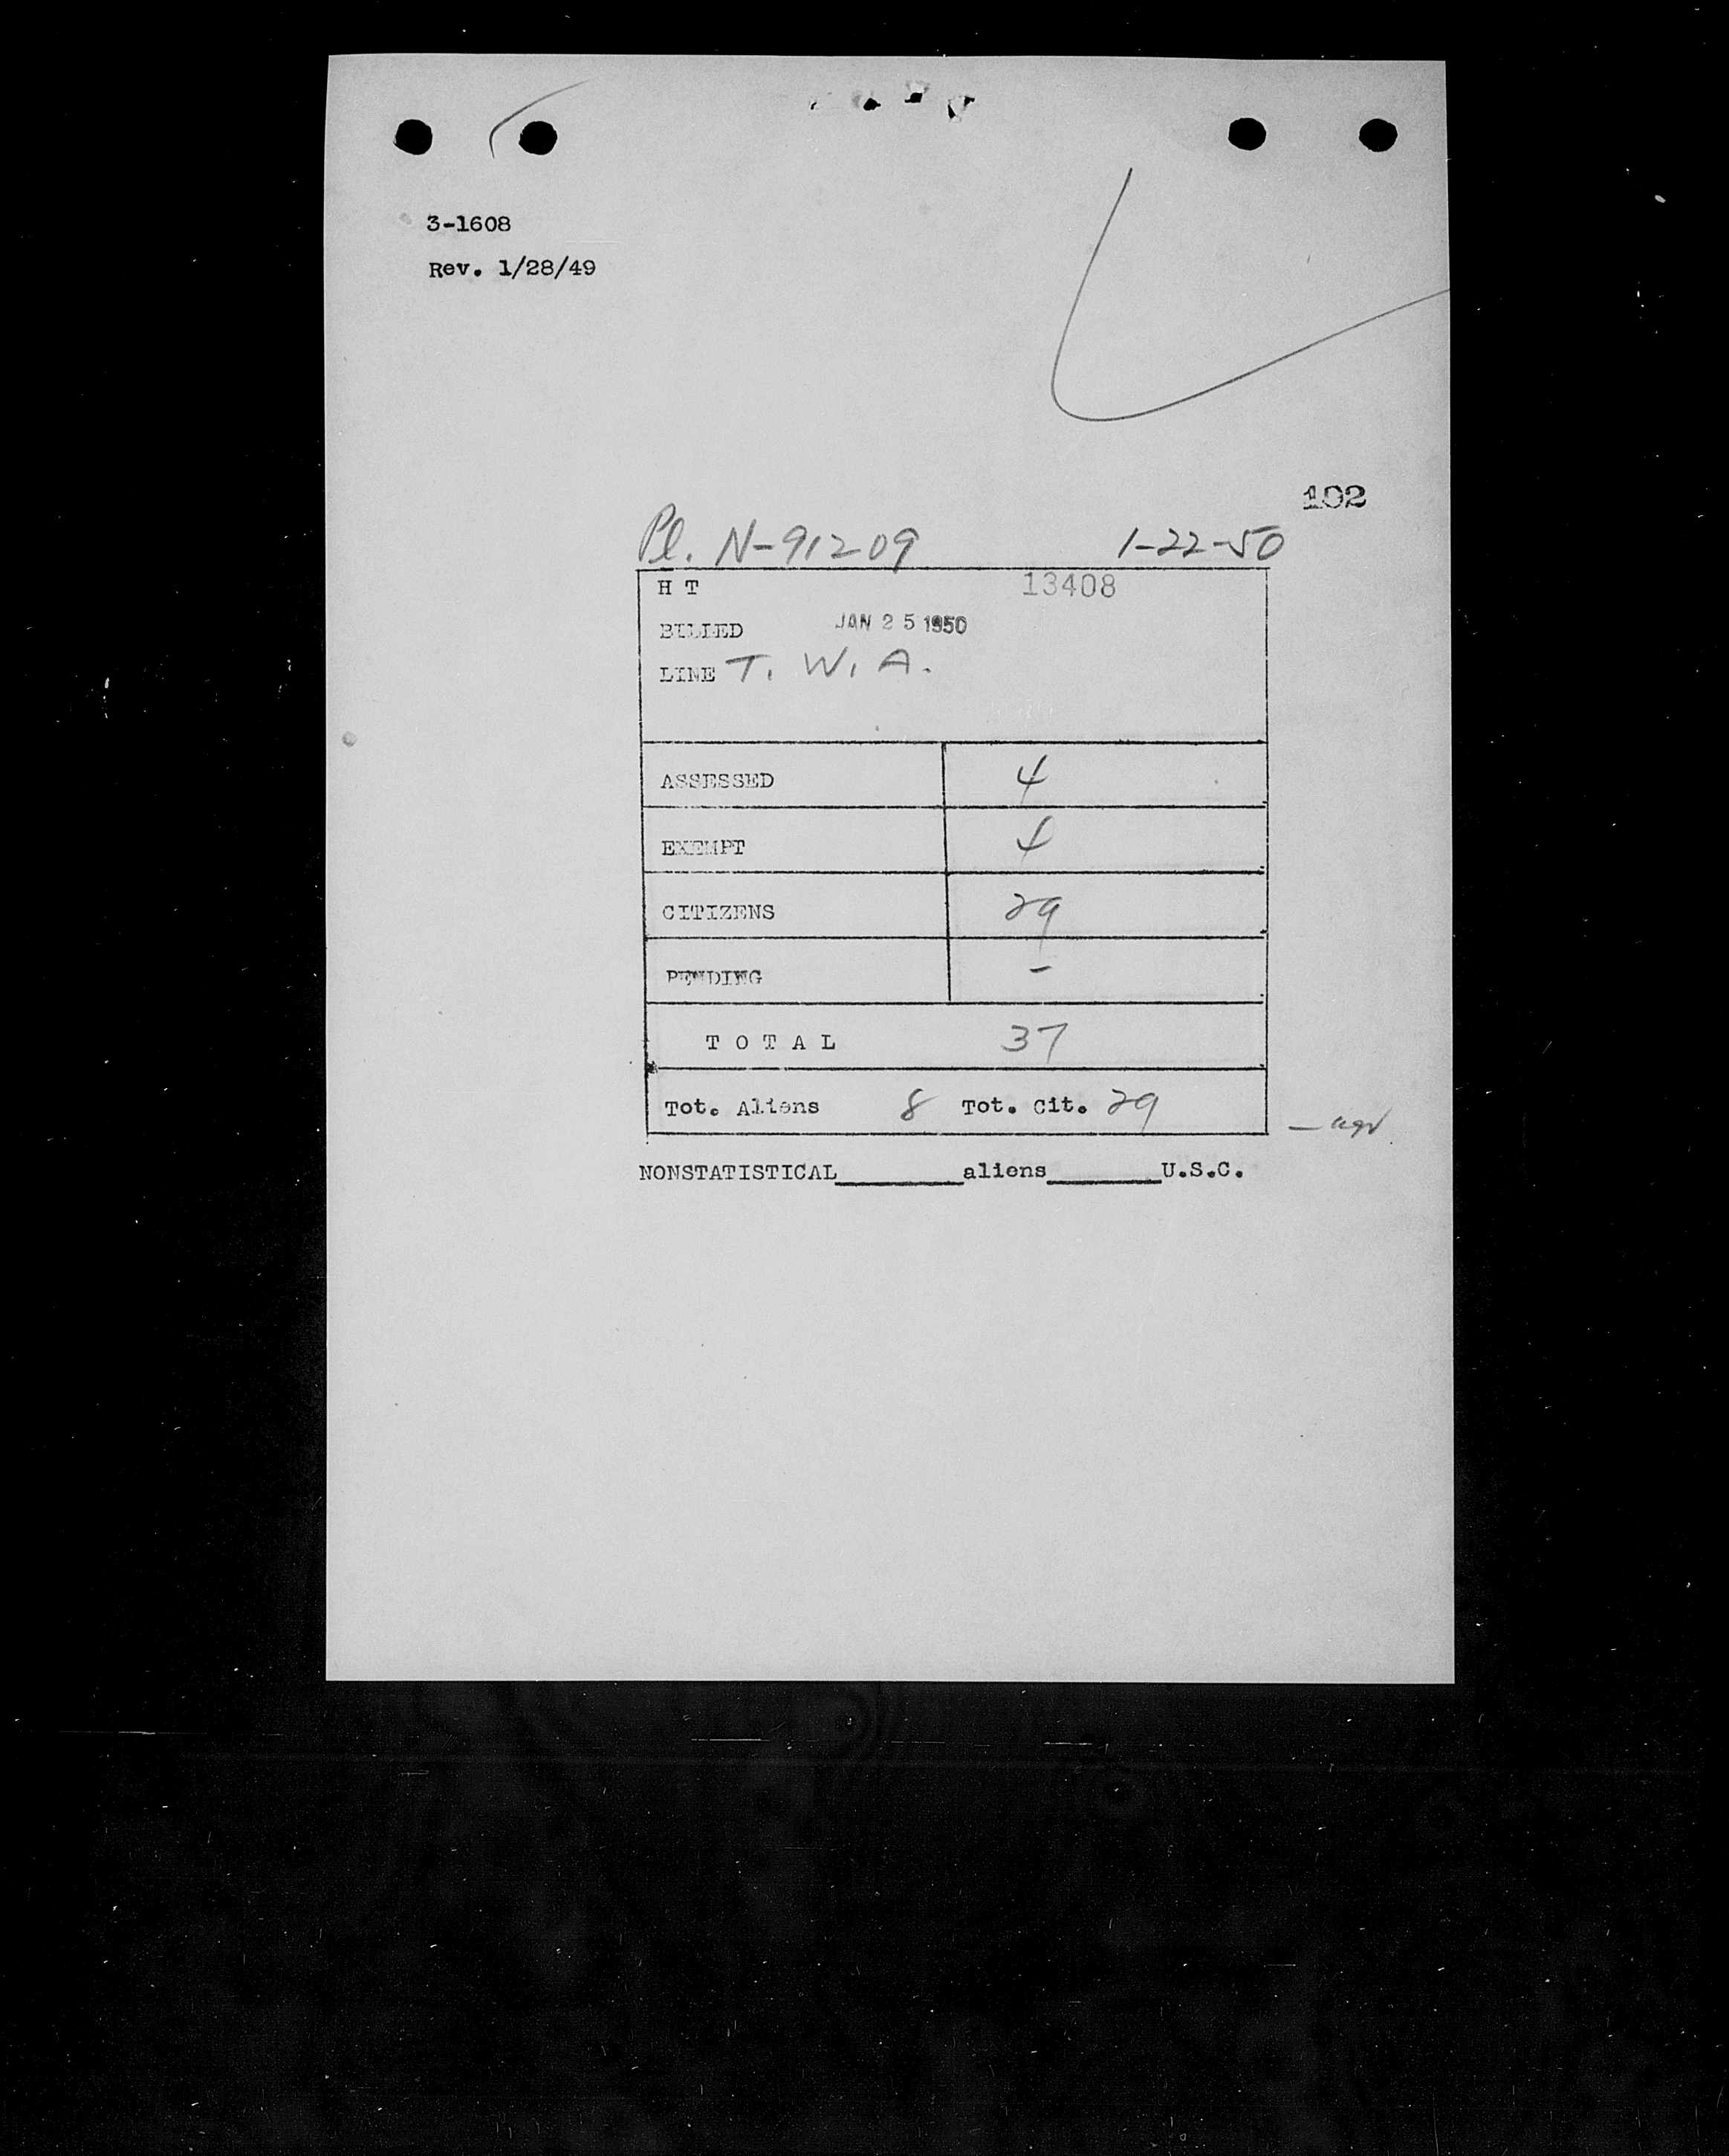 3-1608
Rev. 1/28/49
102
Pl. N-91209 1-22-50
H T 13408
BILLED JAN 25 1950
LINE T. W. A.
ASSESSED 4
EXEMPT 4
CITIZENS 29
PENDING -
TOTAL 37
Tot. Aliens 8 Tot. Cit. 29
NONSTATISTICAL________aliens_______U.S.C.